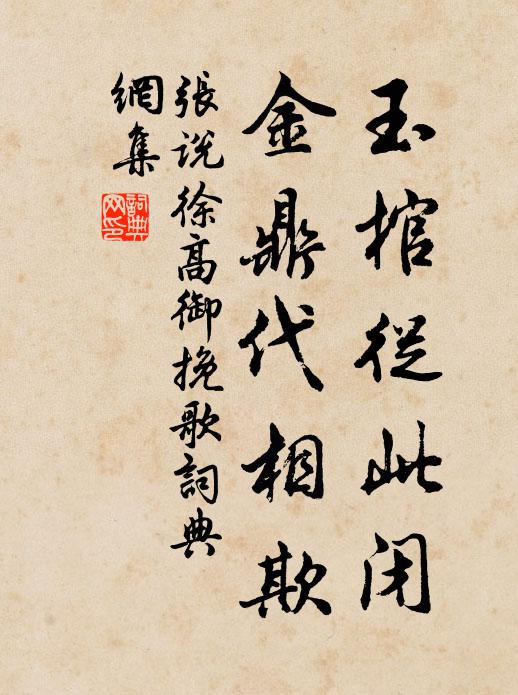 玉棺從此閉
金鼎代相欺
張說徐高御挽歌詞典
網集
詞典
网印